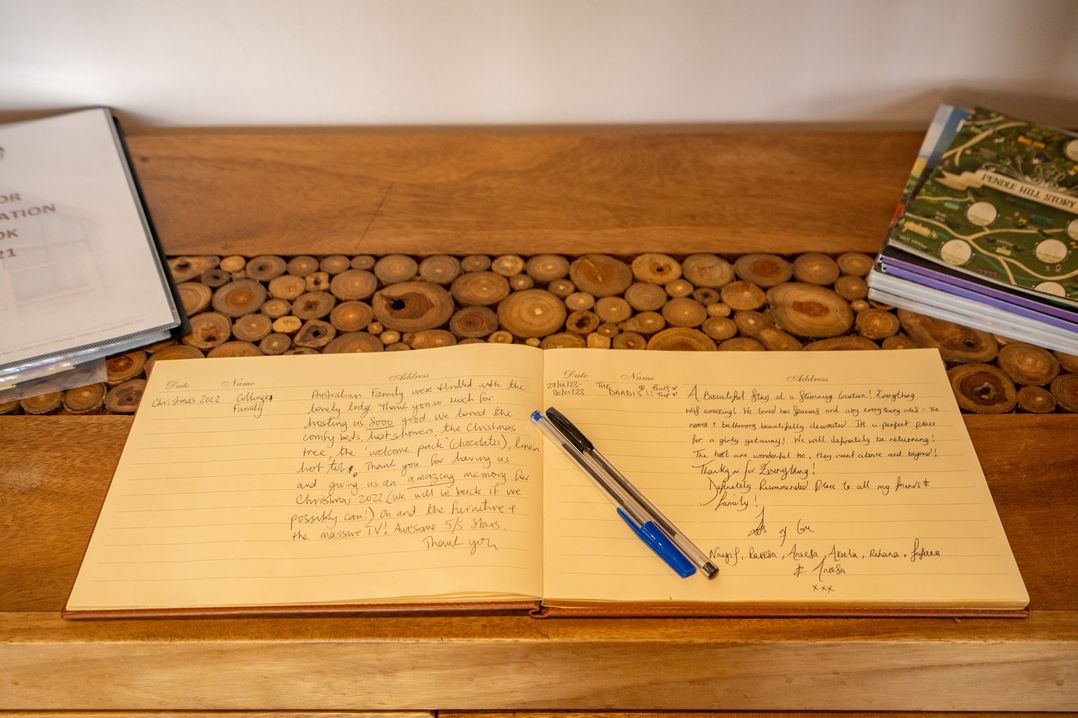 OR
ATION
OK
21
PENDLE HILL STORY
Date Name Address
Christmas 2022 Collinges
Family.
Australian Family were thrilled with the
lovely lodge Thank you so much for
hosting us Sooo good we loved the
comfy beds, hot showers, the Christmas
tree, the 'welcome pack' (chocolates), linen
hot tub, Thank you for having us
and giving us an amazing memory for
Christmas 2022 (we will be back if we
possibly can!) Oh and the furniture +
the massive TV! Awesome 5/5 Stars.
Thank you
Date Name Address
27/01/23-
30/01/23
THE
A Beautiful Stay at a Stunning Location! Everything
was amazing! We loved how spacious and airy everything was - the
rooms + bathrooms beautifully decorated. Its a perfect place
for a girly getaway! We will definately be returning!
The host are wonderful too, they went above and beyond!
Thankyou for Everything!
Definitely Recommended Place to all my friends &
family!
Aneesa
& Aneesa
x x x